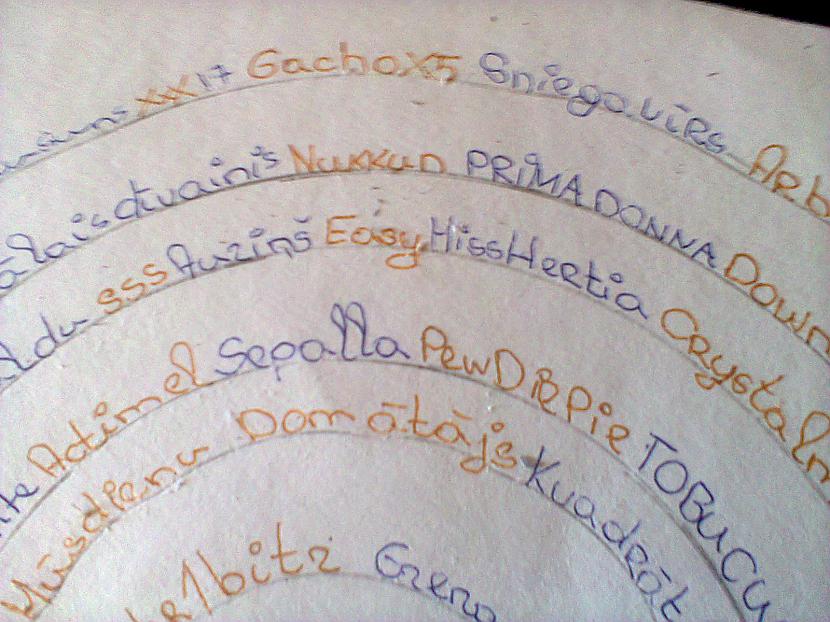 xx17 Gachox5 Sniegavīrs Arb
ālaisdīvainīš Nukkun PRiMADONNA Down
ldu sss Auziņš Easy HissHertia Crystaln
ite Actimel Sepalla PewDiePie TOBUCU
Mūsdienu Domātājs Kvadrāt
r1bitz Enero